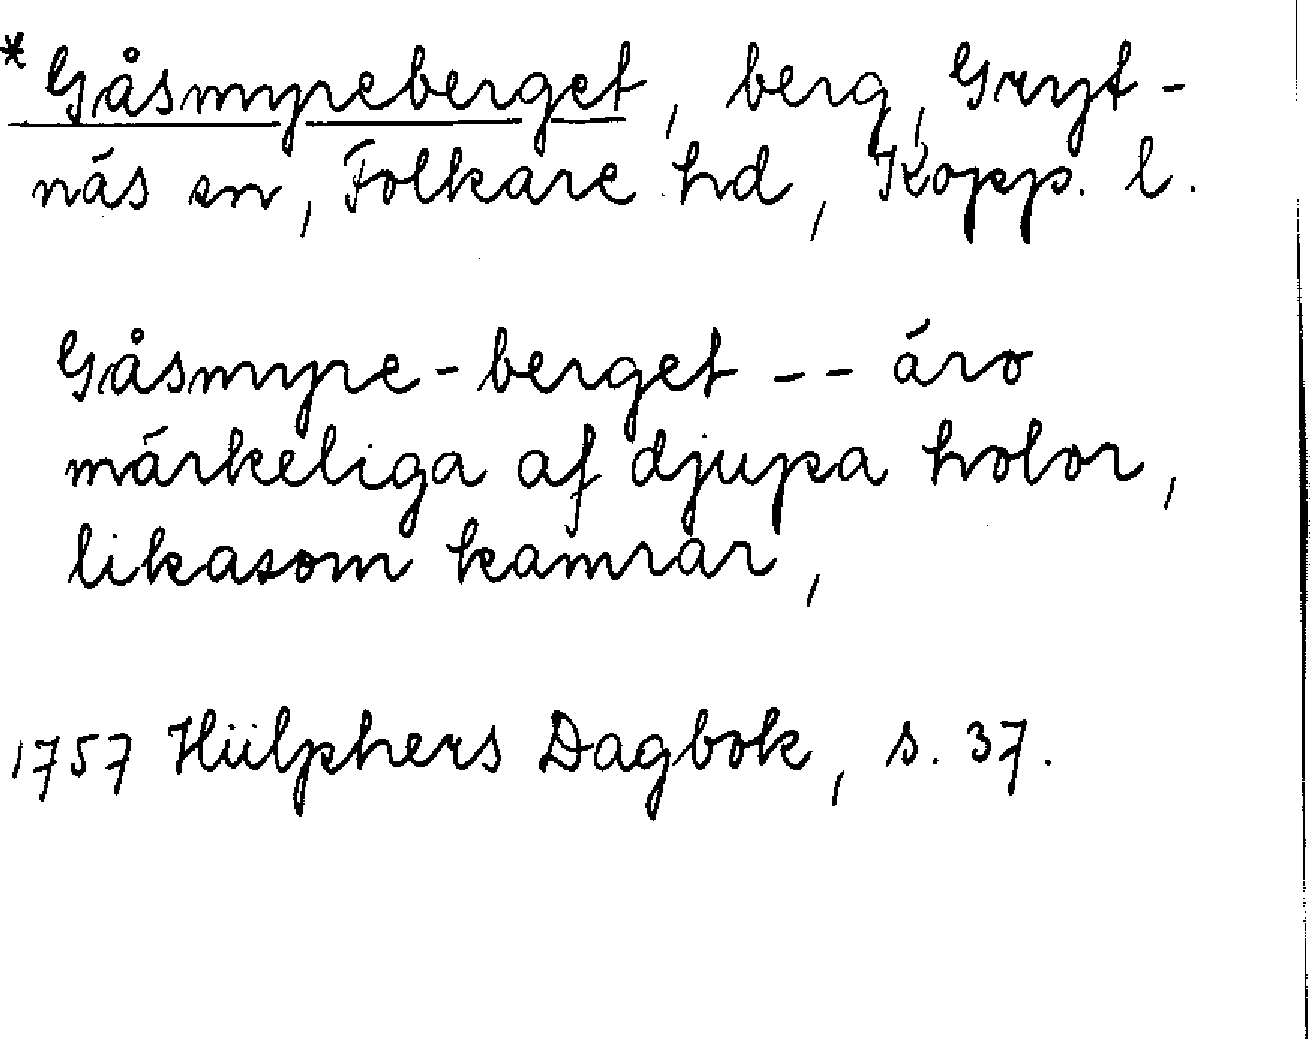 *Gåsmyreberget, berg, Gryt-
näs sn, Folkare hd, Kopp. l.
Gåsmyre-berget -- äro
märkeliga af djupa holor,
likasom kamrar,
1757 Hülphers Dagbok, s. 37.